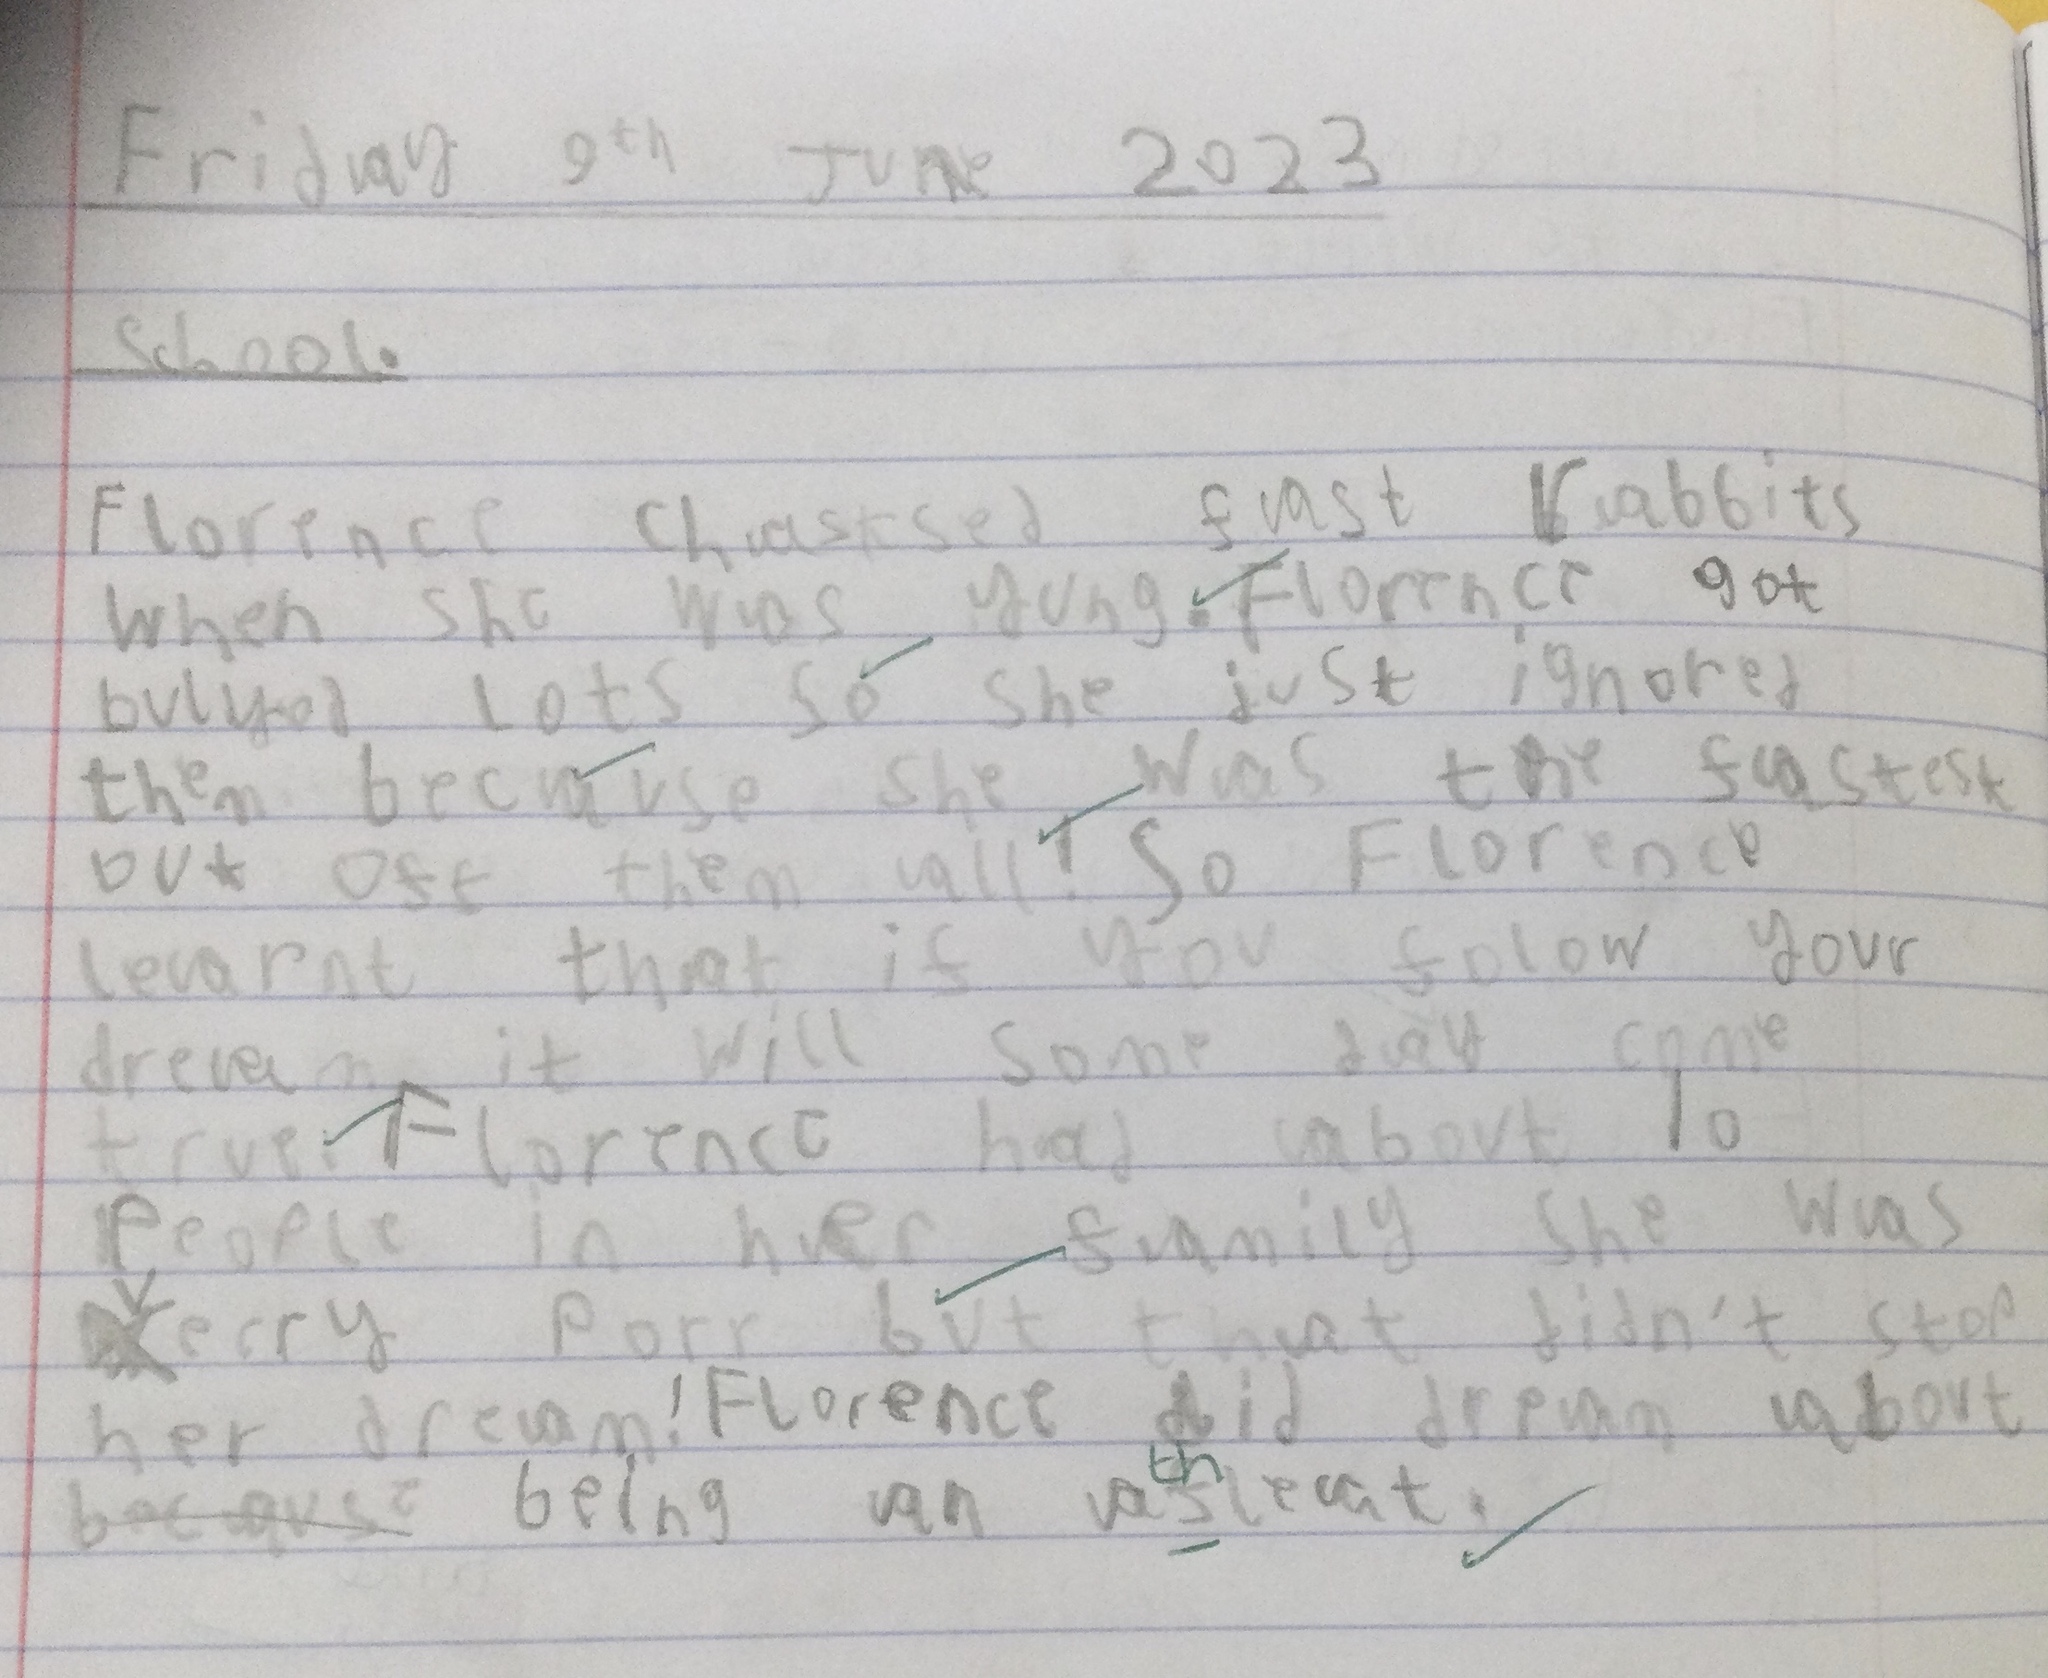 Friday 9th June 2023
School.
Florence chassed fast rabbits
when she was yung. Florence got
bulyed lots so she just ignored
them because she was the fastest
out off them all! So Florence
learnt that if you folow your
dream it will some day come
true. Florence had about 10
people in her family she was
Verry Porr but that didn't stop
her dream! Florence did dream about
because being an asleat.
th